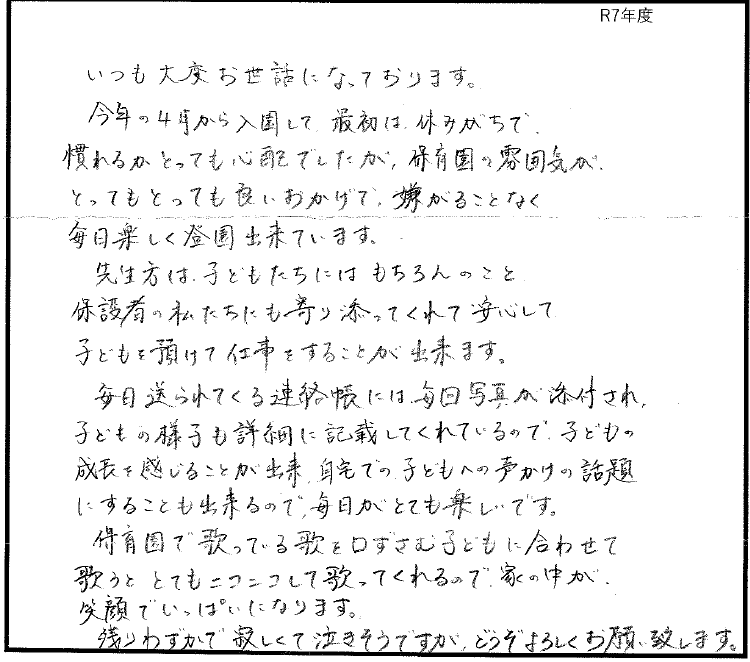 R7年度
いつも大変お世話になっております。
今年の4月から入園して、最初は休みがちで、
慣れるかとっても心配でしたが、保育園の雰囲気が、
とってもとっても良いおかげで、嫌がることなく
毎日楽しく登園出来ています。
先生方は、子どもたちにはもちろんのこと
保護者の私たちにも寄り添ってくれて安心して
子どもを預けて仕事をすることが出来ます。
毎日送られてくる連絡帳には毎回写真が添付され、
子どもの様子も詳細に記載してくれているので、子どもの
成長を感じることが出来、自宅での子どもへの声かけの話題
にすることも出来るので、毎日がとても楽しいです。
保育園で歌っている歌を口ずさむ子どもに合わせて
歌うと、とてもニコニコして歌ってくれるので、家の中が、
笑顔でいっぱいになります。
残りわずかで寂しくて泣きそうですが、どうぞよろしくお願い致します。